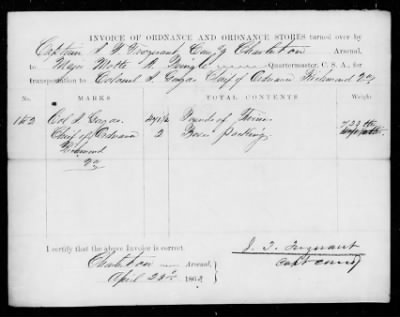 INVOICE OF ORDNANCE AND ORDNANCE STORES turned over by
Captain Comdg Charleston Arsenal,
to Major Motte A. Pringle Quartermaster, C. S. A., for
transportation to Colonel J. Gorgas Chief of Ordnance Richmond Va
No. MARKS TOTAL CONTENTS. Weight
1 & 2 Col J. Gorgas Pounds of Twine
Chief of Ordnance 2 Boxes packing
Richmond
Va
I certify that the above Invoice is correct.
Charleston Arsenal,
April 186
J. T. Trezevant
Capt Comdg